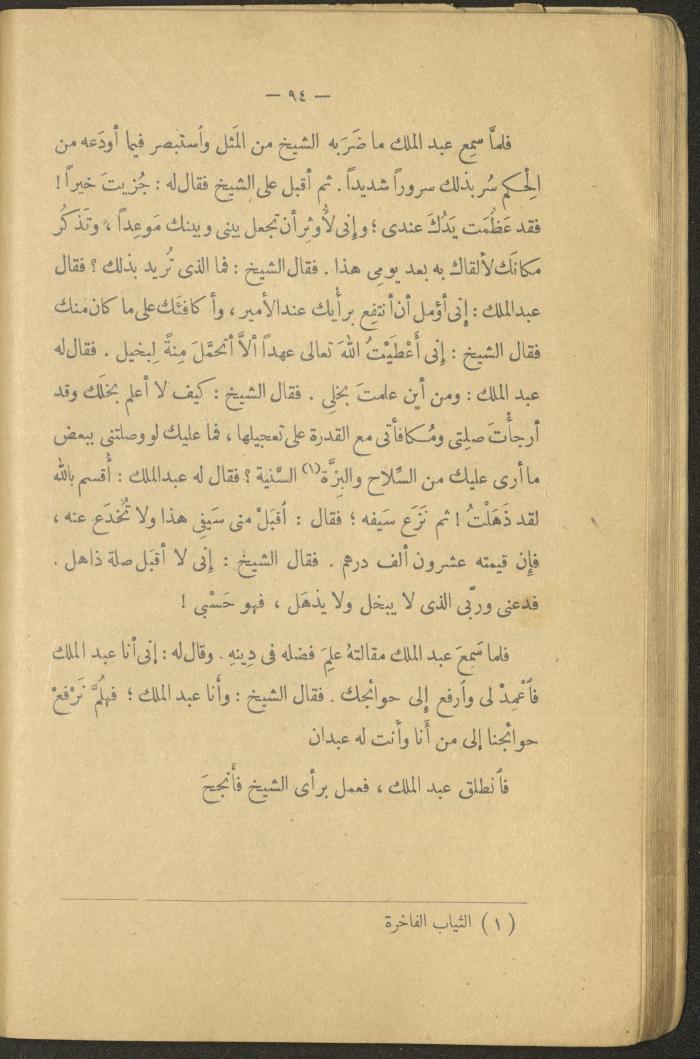 — ٩٤ —
فلما سَمِع عبد الملك ما ضَرَبه الشيخ من المَثل وٱستبصر فيما أودَعه من
الحِكم سُر بذلك سروراً شديداً . ثم أقبل على الشيخ فقال له : جُزيتَ خيراً !
فقد عَظُمَت يَدُكَ عندى ؛ وإنى لأُوثِر أن تجعل بينى وبينك مَوعِداً ، وتَذكُر
مكانَك لألقاك به بعد يومِى هذا . فقال الشيخ : فما الذى تُريد بذلك ؟ فقال
عبد الملك : إنى أؤمل أن أنتفع برأْيك عند الأمير ، وأكافئَك على ما كان منك
فقال الشيخ : إنى أَعْطَيْتُ اللهَ تعالى عهداً ألاَّ أتحمَّلَ مِنةً لِبخيل . فقال له
عبد الملك : ومن أين علمتَ بخلِى . فقال الشيخ : كيف لا أعلم بخلَك وقد
أرجأْتَ صلِتى ومُكافأتى مع القدرة على تعجيلها ، فما عليك لو وصلتنى ببعض
ما أرى عليك من السِّلاح والبِزَّة(١) السَّنية ؟ فقال له عبد الملك : أُقسم بالله
لقد ذَهَلْتُ ! ثم نَزَع سَيفه ؛ فقال : ٱقبَلْ منى سَيفِى هذا ولا تُخدَع عنه ،
فإِن قيمته عشرون ألف درهم . فقال الشيخ : إنى لا أقبَل صلة ذاهل .
فدعنى وربّى الذى لا يبخل ولا يذهَل ، فهو حَسْبى !
فلما سَمِعَ عبد الملك مقالتهُ علِمَ فضله فى دِينِهِ . وقال له : إنى أنا عبد الملك
فٱعْمِدْ لى وٱرفع إلى حوائجك . فقال الشيخ : وأَنا عبد الملك ؛ فهلُمَّ نَرْفعْ
حوائجنا إلى من أَنا وأنت له عبدان
فٱنطلق عبد الملك ، فعمل برأى الشيخ فأَنجحَ
( ١ ) الثياب الفاخرة